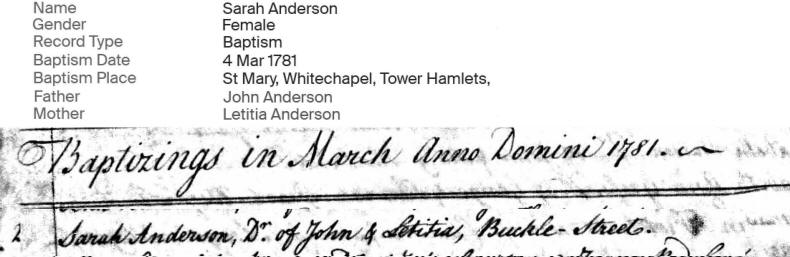 Name Sarah Anderson
Gender Female
Record Type Baptism
Baptism Date 4 Mar 1781
Baptism Place St Mary, Whitechapel, Tower Hamlets,
Father John Anderson
Mother Letitia Anderson
Baptizings in March Anno Domini 1781.
2 Sarah Anderson, Dr. of John & Letitia, Buckle-Street.